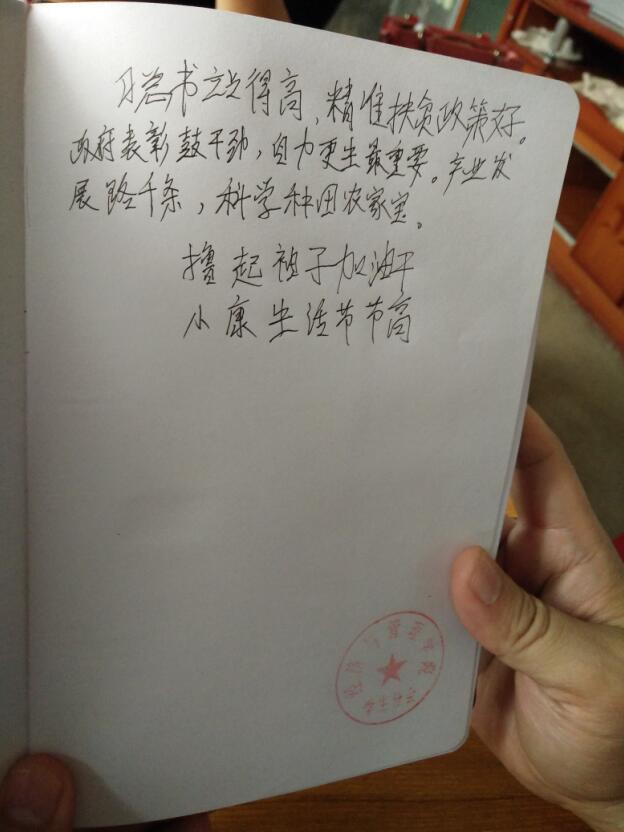 习总书记说得高，精准扶贫政策好。
政府表彰鼓干劲，自力更生最重要。产业发
展路千条，科学种田农家宝。
撸起袖子加油干
小康生活节节高